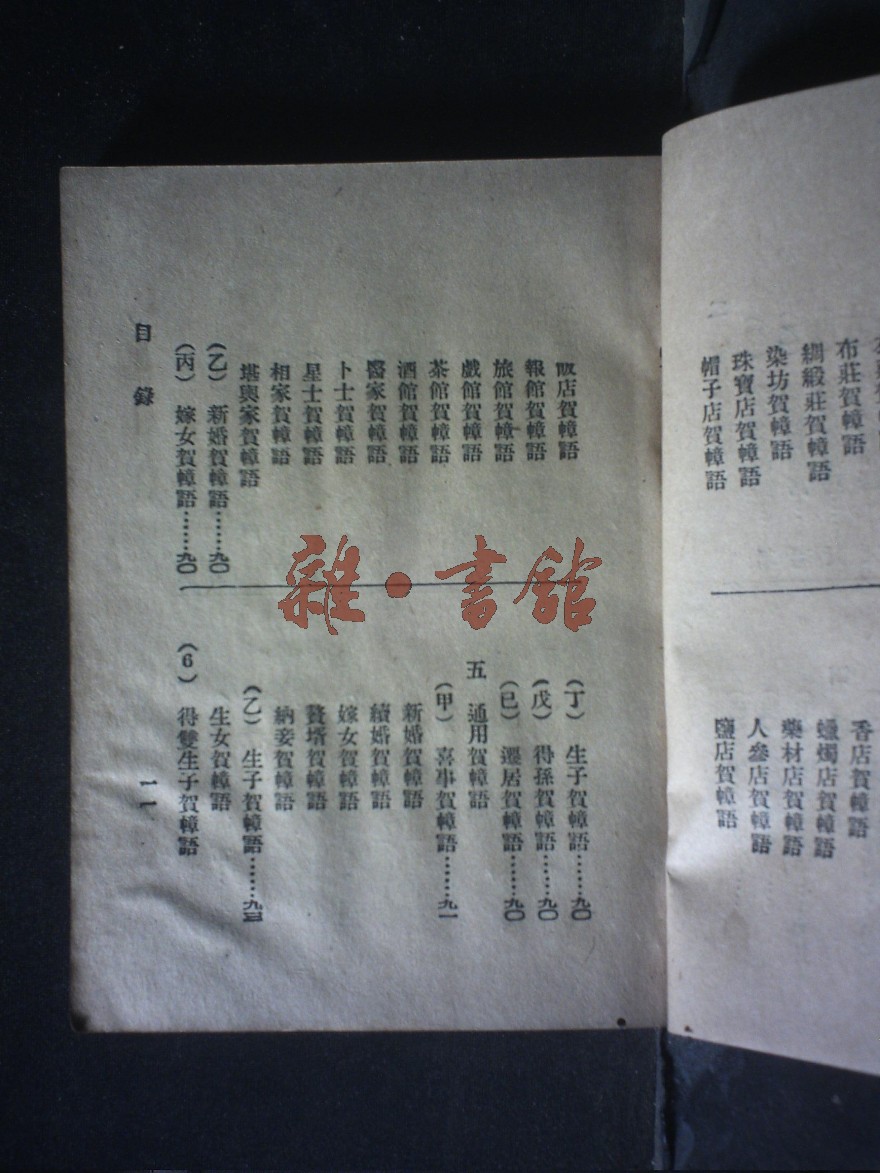 布莊賀幛語
綢緞莊賀幛語
染坊賀幛語
珠寶店賀幛語
帽子店賀幛語
香店賀幛語
蠟燭店賀幛語
藥材店賀幛語
人參店賀幛語
鹽店賀幛語
飯店賀幛語
報館賀幛語
旅館賀幛語
戲館賀幛語
茶館賀幛語
酒館賀幛語
醫家賀幛語
卜士賀幛語
星士賀幛語
相家賀幛語
堪輿家賀幛語
(乙) 新婚賀幛語……九〇
(丙) 嫁女賀幛語……九〇
(丁) 生子賀幛語……九〇
(戊) 得孫賀幛語……九〇
(已) 遷居賀幛語……九〇
五 通用賀幛語
(甲) 喜事賀幛語……九一
新婚賀幛語
續婚賀幛語
嫁女賀幛語
贅壻賀幛語
納妾賀幛語
(乙) 生子賀幛語……九三
生女賀幛語
(6) 得雙生子賀幛語
目錄
一一
雜·書館